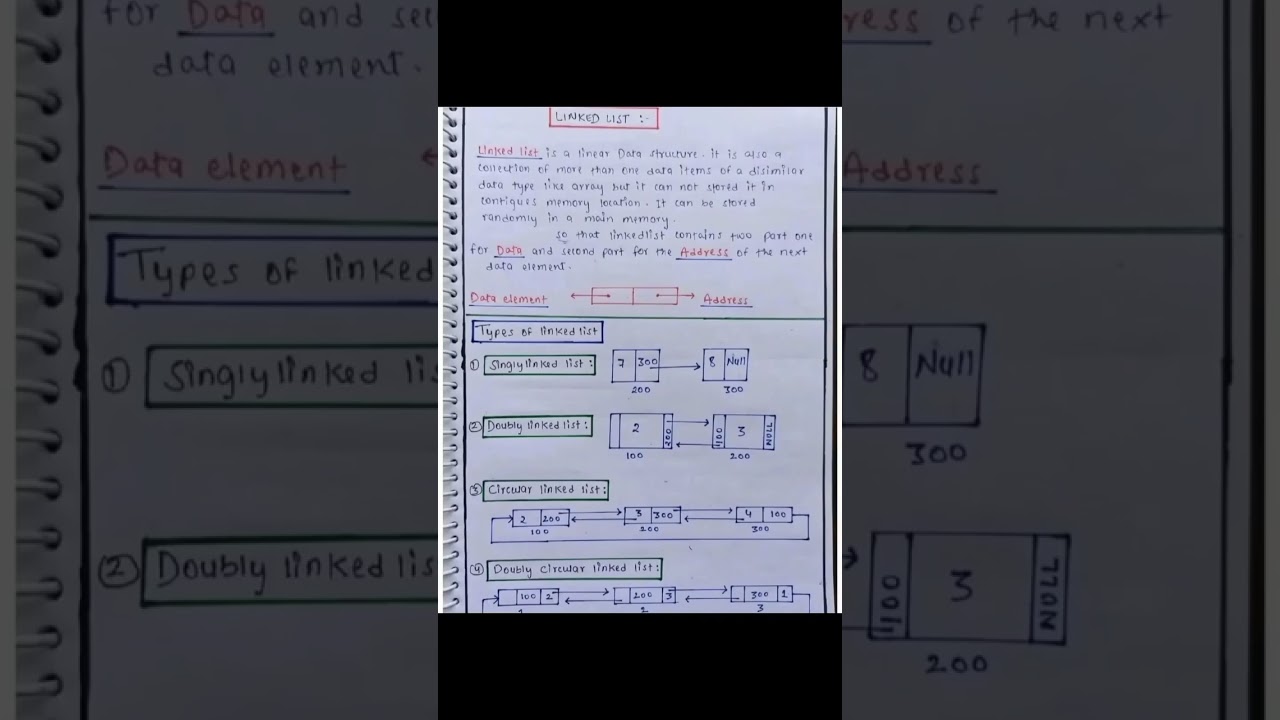 LINKED LIST :-
Linked list is a linear Data structure. it is also a
collection of more than one data items of a disimilar
data type like array but it can not stored it in
contigues memory location. It can be stored
randomly in a main memory.
so that linkedlist contains two part one
for Data and second part for the Address of the next
data element.
Data element Address
Types of linked list
① Singly linked list :
7 300 8 Null
200 300
② Doubly linked list :
2 200 100 3 NULL
100 200
③ Circular linked list :
2 200 3 300 4 100
100 200 300
④ Doubly circular linked list :
100 2 200 3 300 1
1 2 3
for Data and sec
data element.
Data element
Types of linked
① Singly linked lis
② Doubly linked lis
ress of the next
Address
8 Null
300
100 3 NULL
200